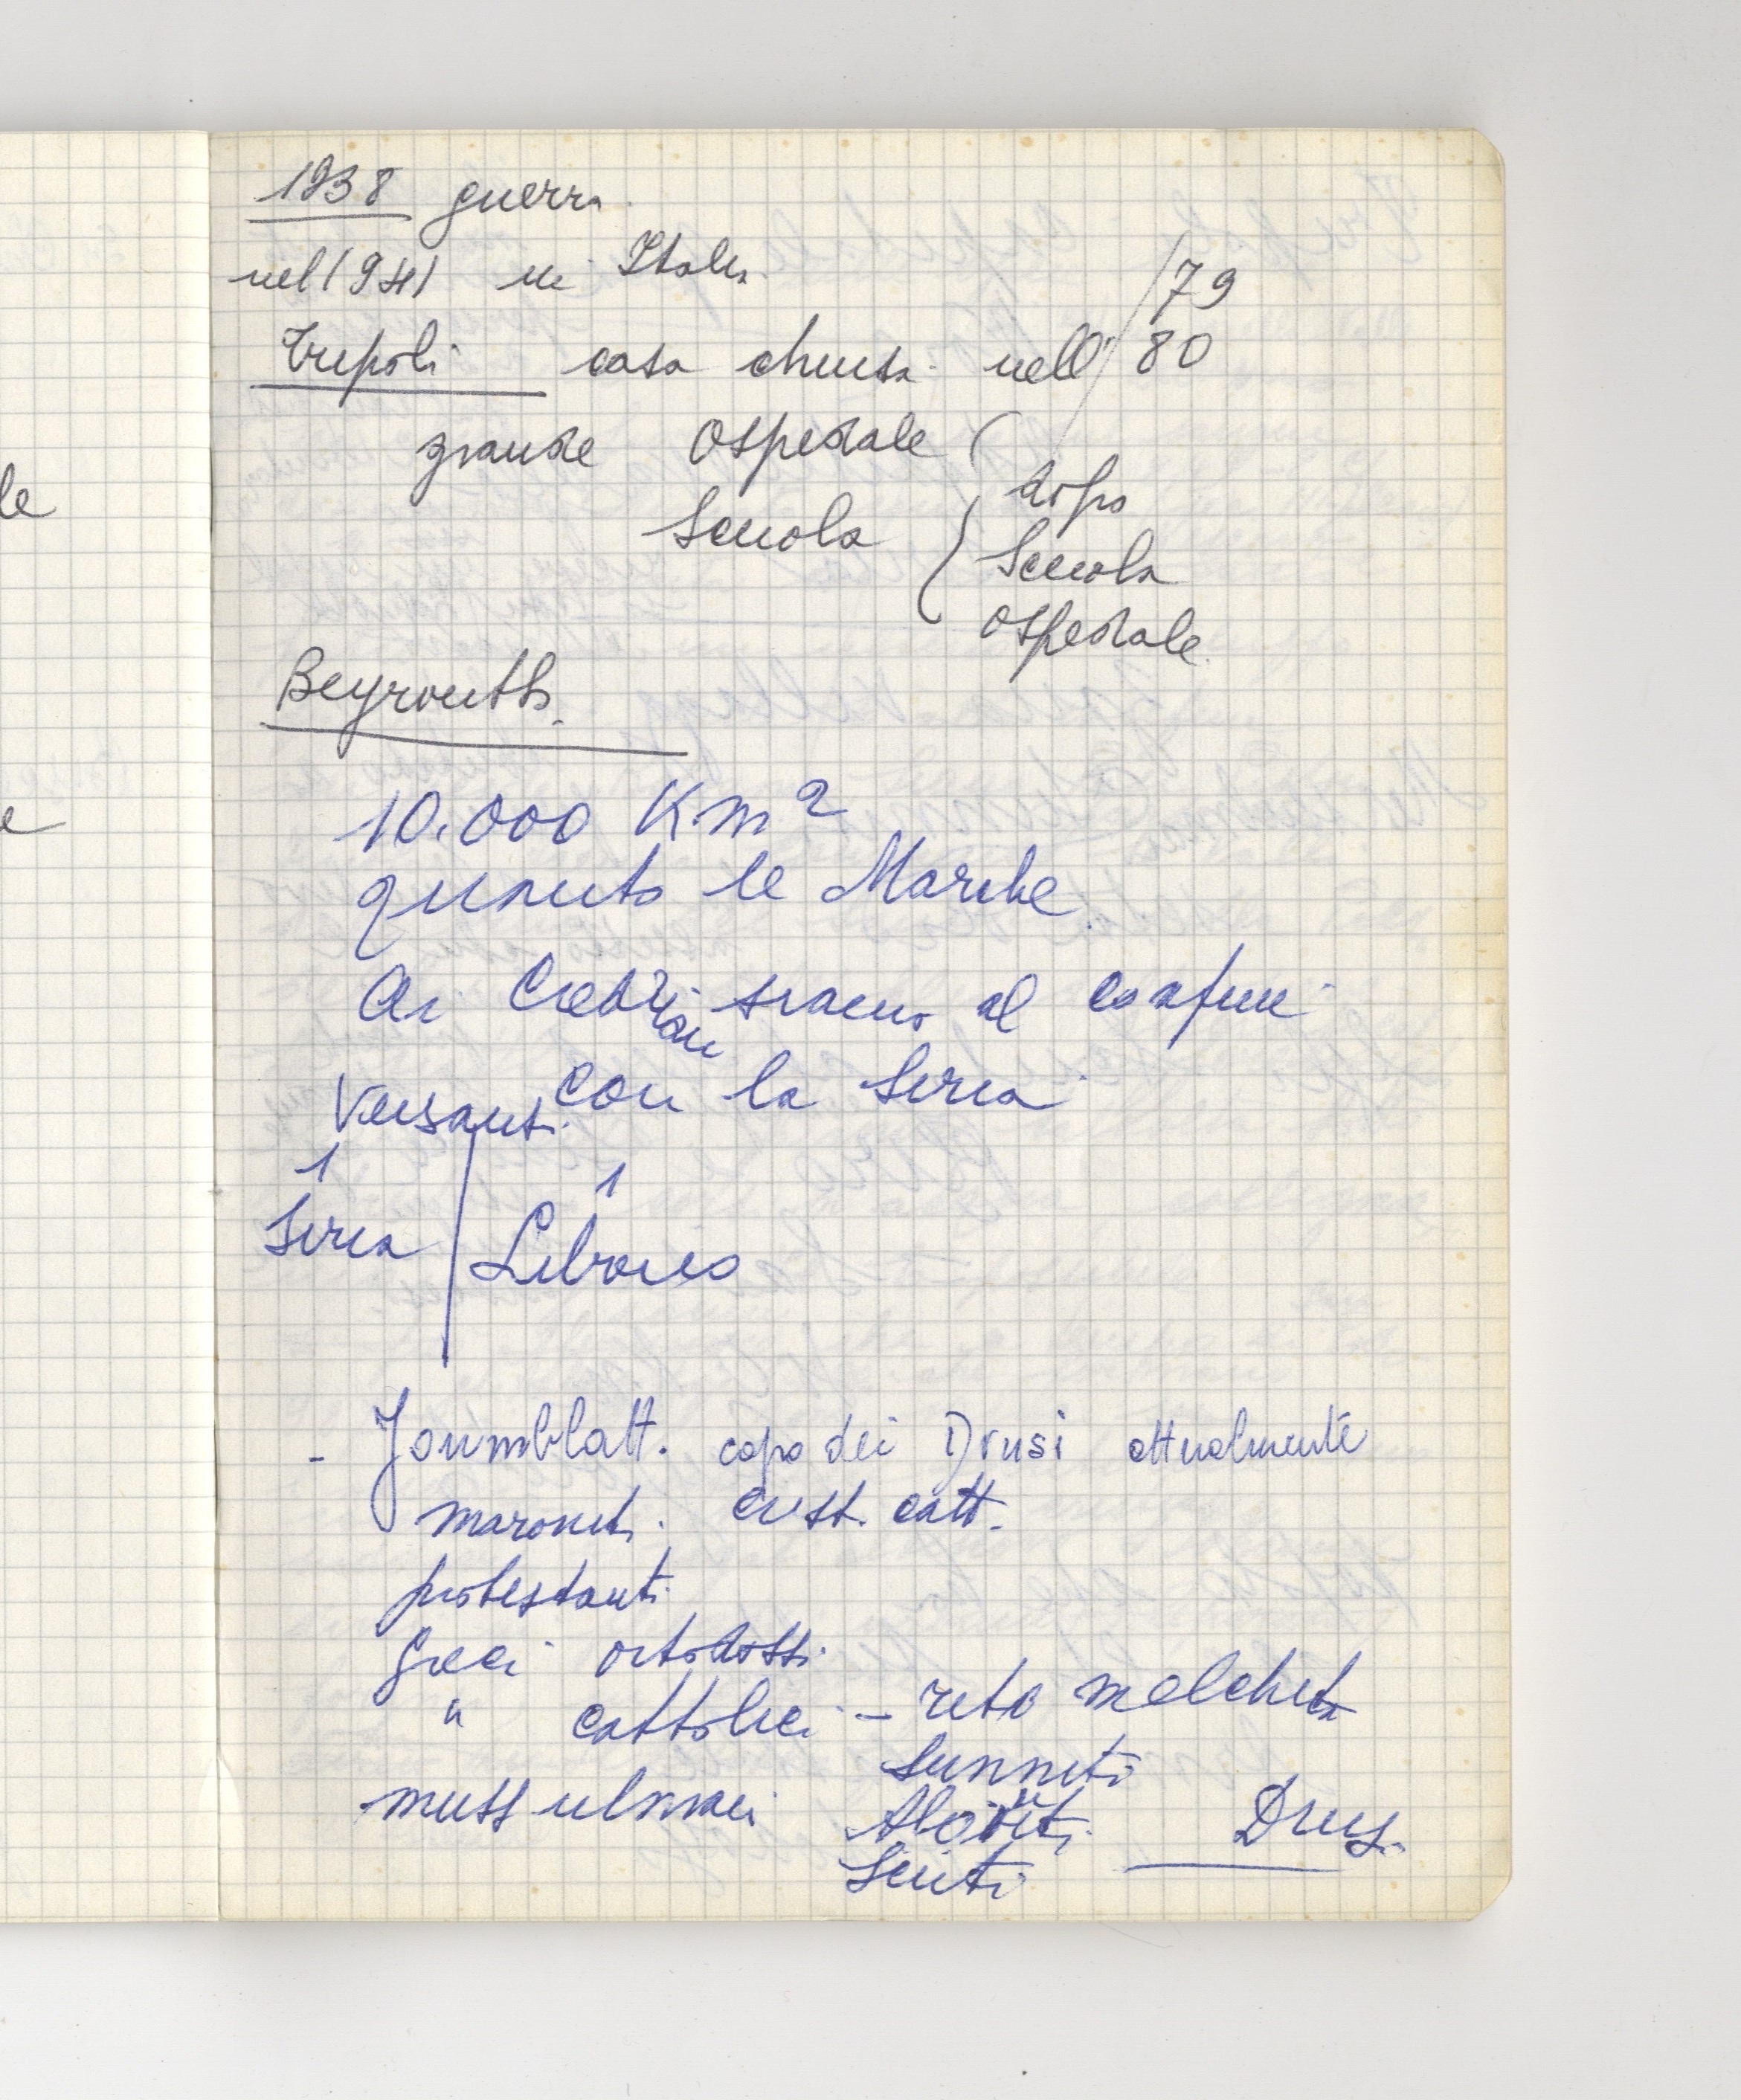 le
e
1938 guerra
nel 1941 in Italia
/79
Tripoli casa chiusa nell' 80
grande Ospedale (
Scuola
( dopo
Scuola
Ospedale
Beyrouth.
10.000 Km²
quanto le Marche
Ai Cedri siamo al confine
con la Siria
Versanti
1
1
Siria
Libano
- Joumblatt. capo dei Drusi attualmente
maroniti. crist. catt.
protestanti
greci ortodossi
" cattolici - rito melchita
sunniti
mussulmani Alaviti Drusi
Sciiti